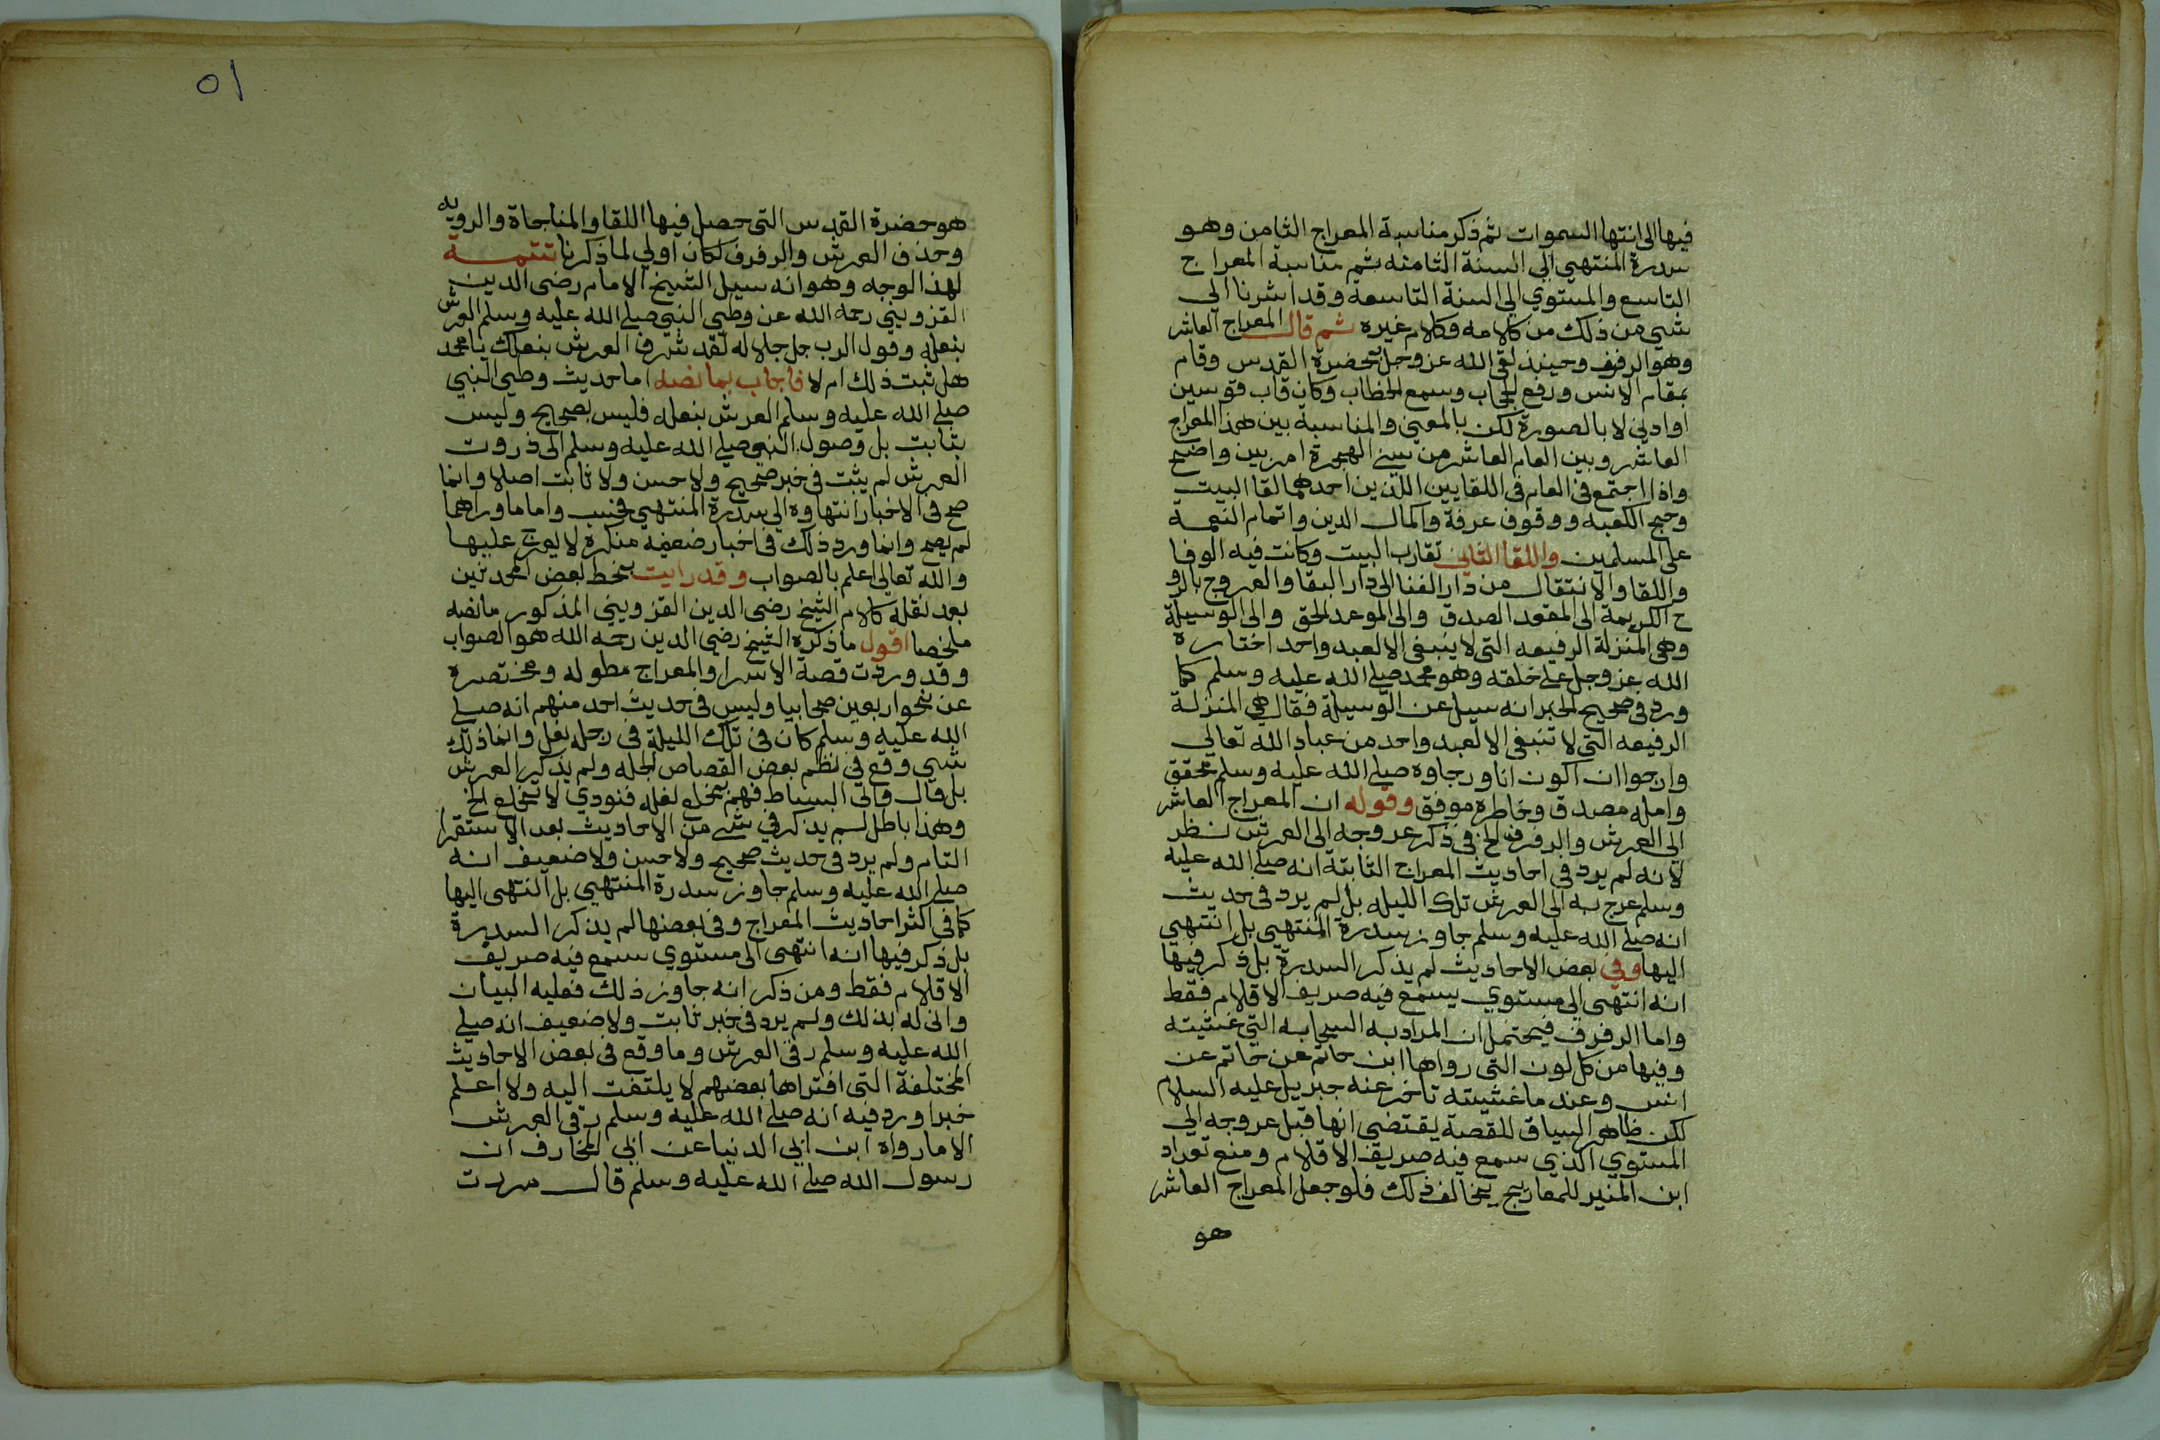 فيها الى انتها السموات ثم ذكر مناسبة المعراج الثامن وهو
سدرة المنتهي الي السنة الثامنه ثم مناسبة المعراج
التاسع والمستوي الي السنة التاسعة وقد اشرنا الي
شي من ذلك من كلامه وكلام غيره ثم قال المعراج العاشر
وهو الرفرف وحينئذ لقي الله عز وجل بحضرة القدس وقام
بمقام الانس ورفع الحجاب وسمع الخطاب وكان قاب قوسين
او ادني لا بالصورة لكن بالمعني والمناسبة بين هذا المعراج
العاشر وبين العام العاشر من سني الهجرة امر بين واضح
واذا اجتمع في العام في اللقايين اللذين احدهما لقا البيت
وحج الكعبه ووقوف عرفة واكمال الدين واتمام النعمة
علي المسلمين واللقا الثاني تقارب البيت وكانت فيه الوفا
واللقا والانتقال من دار الفنا الى دار البقا والعروج بالرو
ح الكريمة الى المقعد الصدق والى الموعد الحق والى الوسيلة
وهي المنزلة الرفيعه التي لا ينبغي الا لعبد واحد اختاره
الله عز وجل على خلقه وهو محمد صلى الله عليه وسلم كما
ورد في صحيح الخبر انه سيل عن الوسيلة فقال هي المنزلة
الرفيعه التي لا تنبغي الا لعبد واحد من عباد الله تعالي
وارجوا ان اكون انا ورجاوه صلى الله عليه وسلم محقق
وامله مصدق وخاطره موفق وقوله ان المعراج العاشر
الى العرش والرفرف الخ في ذكر عروجه الى العرش نظر
لانه لم يرد في احاديث المعراج الثابتة انه صلى الله عليه
وسلم عرج به الى العرش تلك الليله بل لم يرد في حديث
انه صلى الله عليه وسلم جاوز سدرة المنتهي بل انتهي
اليها وفي بعض الاحاديث لم يذكر السدرة بل ذكر فيها
انه انتهى الي مستوي يسمع فيه صريف الاقلام فقط
واما الرفرف فيحتمل ان المراد به السحابه التي غشيته
وفيها من كل لون التي رواها ابن حاتم عن حاتم عن
انس وعند ما غشيته تاخر عنه جبريل عليه السلام
لكن ظاهر السياق للقصة يقتضي انها قبل عروجه الي
المستوي الذي سمع فيه صريف الاقلام ومنع تعداد
ابن المنير للمعاريج يخالف ذلك فلو جعل المعراج العاشر
هو
٥١
هو حضرة القدس التي حصل فيها اللقا والمناجاة والرويه
وحذف العرش والرفرف لكان اولي لما ذكرنا تتمة
لهذا الوجه وهو انه سيل الشيخ الامام رضى الدين
القزويني رحمه الله عن وطي النبي صلى الله عليه وسلم العرش
بنعله وقول الرب جل جلاله لقد شرف العرش بنعلك يا محمد
هل ثبت ذلك ام لا فاجاب بما نصه اما حديث وطي النبي
صلى الله عليه وسلم العرش بنعله فليس بصحيح وليس
بثابت بل وصول النبي صلى الله عليه وسلم الى ذروت
العرش لم يثبت في خبر صحيح ولا حسن ولا ثابت اصلا وانما
صح في الاخبار انتهاوه الى سدرة المنتهي فحسب واما ما وراها
لم يصح وانما ورد ذلك في اخبار ضعيفه منكرة لا يعرج عليها
والله تعالي اعلم بالصواب وقد رايت بخط بعض المحدثين
بعد نقله كلام الشيخ رضى الدين القزويني المذكور ما نصه
ملخصا اقول ما ذكره الشيخ رضي الدين رحمه الله هو الصواب
وقد وردت قصة الاسرا والمعراج مطوله ومختصره
عن نحو اربعين صحابيا وليس في حديث احد منهم انه صلى
الله عليه وسلم كان في تلك الليلة في رجله نعل وانما ذلك
شي وقع في نظم بعض القصاص الجهله ولم يذكر العرش
بل قال واتى البساط فهم بخلع نعله فنودي لا تخلع الخ
وهذا باطل لم يذكر في شي من الاحاديث بعد الاستقرا
التام ولم يرد في حديث صحيح ولا حسن ولا ضعيف انه
صلى الله عليه وسلم جاوز سدرة المنتهي بل انتهى اليها
كما في اكثر احاديث المعراج وفي بعضها لم يذكر السدرة
بل ذكر فيها انه انتهى الى مستوي سمع فيه صريف
الاقلام فقط ومن ذكر انه جاوز ذلك فعليه البيان
واني له بذلك ولم يرد في خبر ثابت ولا ضعيف انه صلى
الله عليه وسلم رقى العرش وما وقع في بعض الاحاديث
المختلفة التي افتراها بعضهم لا يلتفت اليه ولا اعلم
خبرا ورد فيه انه صلى الله عليه وسلم رقى العرش
الا ما رواه ابن ابي الدنيا عن ابي المخارف ان
رسول الله صلى الله عليه وسلم قال مررت